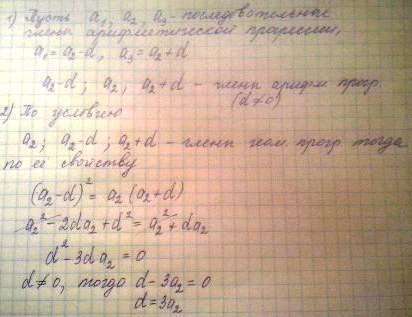 1) Пусть a₁; a₂, a₃ - последовательные
члены арифметической прогрессии,
a₁ = a₂-d, a₃ = a₂+d
a₂-d; a₂, a₂+d - члены арифм прогр.
(d≠0)
2) По условию
a₂; a₂-d; a₂+d - члены геом. прогр. тогда
по её свойству
(a₂-d)² = a₂ (a₂+d)
a₂² - 2da₂ + d² = a₂² + da₂
d² - 3da₂ = 0
d≠0, тогда d - 3a₂ = 0
d = 3a₂